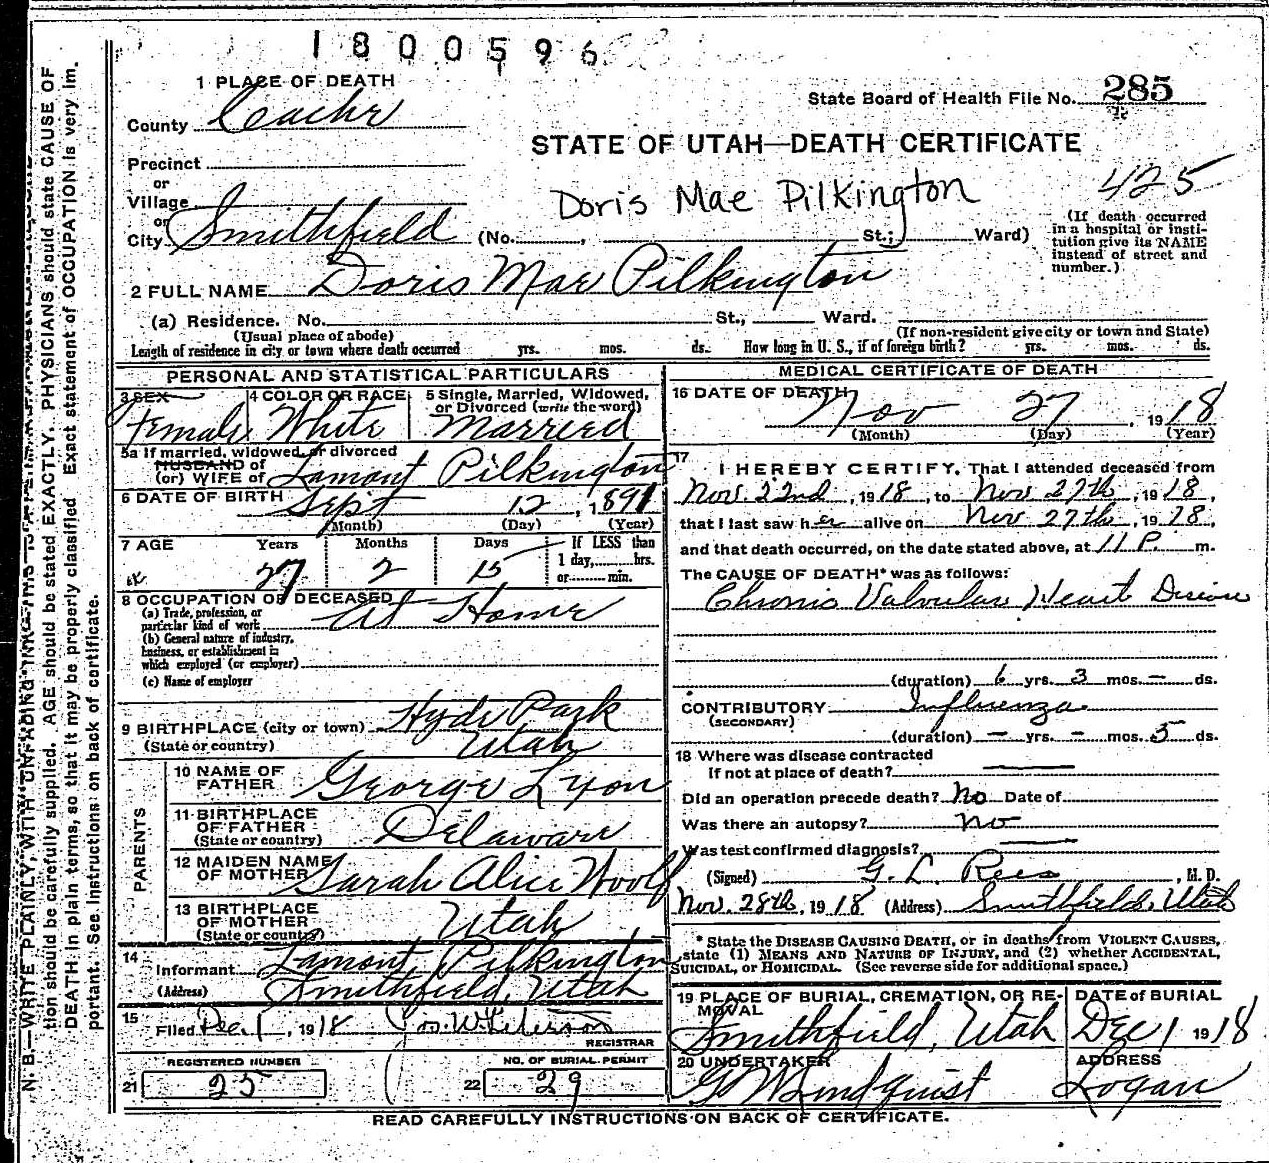 1800596
1 PLACE OF DEATH
State Board of Health File No. 285
County Cache
STATE OF UTAH—DEATH CERTIFICATE
Precinct
or
Village
Doris Mae Pilkington
425
or
City Smithfield (No. , St.; Ward)
(If death occurred
in a hospital or insti-
tution give its NAME
instead of street and
number.)
2 FULL NAME Doris Mae Pilkington
(a) Residence. No. St., Ward.
(Usual place of abode)
(If non-resident give city or town and State)
Length of residence in city or town where death occurred yrs. mos. ds. How long in U. S., if of foreign birth? yrs. mos. ds.
PERSONAL AND STATISTICAL PARTICULARS
3 SEX
Female
4 COLOR OR RACE
White
5 Single, Married, Widowed,
or Divorced (write the word)
Married
5a If married, widowed, or divorced
HUSBAND of
(or) WIFE of Lamont Pilkington
6 DATE OF BIRTH Sept 12, 1891
(Month) (Day) (Year)
7 AGE Years Months Days If LESS than
1 day, hrs.
27 2 15 or min.
8 OCCUPATION OF DECEASED
(a) Trade, profession, or
particular kind of work At Home
(b) General nature of industry,
business, or establishment in
which employed (or employer)
(c) Name of employer
9 BIRTHPLACE (city or town) Hyde Park
(State or country) Utah
PARENTS
10 NAME OF
FATHER George Lyon
11 BIRTHPLACE
OF FATHER
(State or country) Delaware
12 MAIDEN NAME
OF MOTHER Sarah Alice Woolf
13 BIRTHPLACE
OF MOTHER
(State or country) Utah
14
Informant Lamont Pilkington
(Address) Smithfield, Utah
15
Filed Dec. 1, 1918 Jos. W. Peterson
REGISTRAR
REGISTERED NUMBER
21 25
NO. OF BURIAL PERMIT
22 29
MEDICAL CERTIFICATE OF DEATH
16 DATE OF DEATH
Nov 27, 1918
(Month) (Day) (Year)
17
I HEREBY CERTIFY, That I attended deceased from
Nov. 22nd, 1918, to Nov 27th, 1918,
that I last saw her alive on Nov 27th, 1918,
and that death occurred, on the date stated above, at 11 P. m.
The CAUSE OF DEATH* was as follows:
Chronic Valvular Heart Disease
(duration) 6 yrs. 3 mos. - ds.
CONTRIBUTORY Influenza
(SECONDARY)
(duration) - yrs. - mos. 5 ds.
18 Where was disease contracted
If not at place of death?
Did an operation precede death? No Date of
Was there an autopsy? no
Was test confirmed diagnosis?
(Signed) G. L. Rees, M. D.
Nov. 28th, 1918 (Address) Smithfield, Utah
* State the DISEASE CAUSING DEATH, or in deaths from VIOLENT CAUSES,
state (1) MEANS AND NATURE OF INJURY, and (2) whether ACCIDENTAL,
SUICIDAL, or HOMICIDAL. (See reverse side for additional space.)
19 PLACE OF BURIAL, CREMATION, OR RE-
MOVAL
Smithfield, Utah
DATE of BURIAL
Dec 1 1918
20 UNDERTAKER
G W Lindquist
ADDRESS
Logan
READ CAREFULLY INSTRUCTIONS ON BACK OF CERTIFICATE.
N. B.—WRITE PLAINLY, WITH UNFADING INK
tion should be carefully supplied. AGE should be stated EXACTLY. PHYSICIANS should state CAUSE OF
DEATH in plain terms, so that it may be properly classified. Exact statement of OCCUPATION is very im-
portant. See instructions on back of certificate.